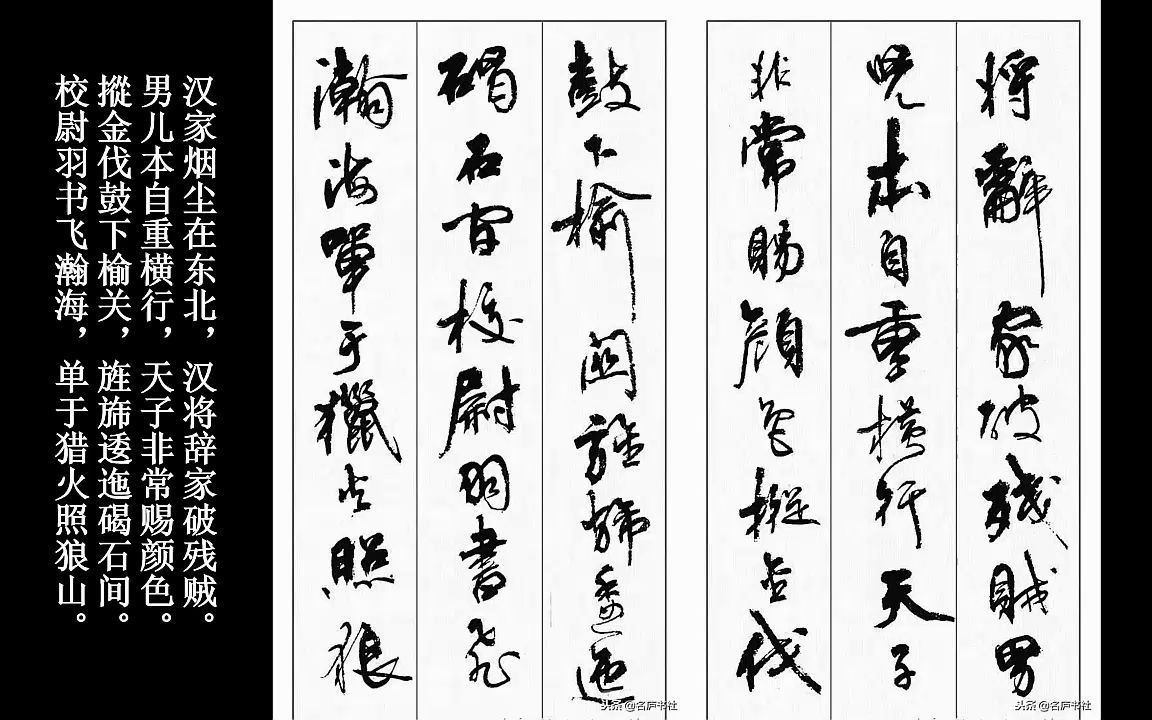 將辭家破殘賊男
兒本自重橫行天子
非常賜顏色摐金伐
鼓下榆關旌旆逶迤
碣石間校尉羽書飛
瀚海單于獵火照狼
汉家烟尘在东北，汉将辞家破残贼。
男儿本自重横行，天子非常赐颜色。
摐金伐鼓下榆关，旌旆逶迤碣石间。
校尉羽书飞瀚海，单于猎火照狼山。
头条 @名庐书社
头条 @名庐书社